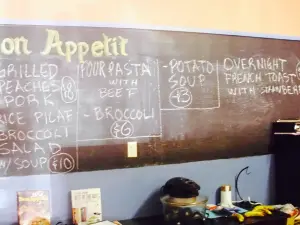 on Appetit
GRILLED
PEACHES
PORK
RICE PILAF
BROCCOLI
SALAD
W/ SOUP $10
FOUR PASTA
WITH
BEEF
- BROCCOLI
$6
- POTATO
SOUP
$3
OVERNIGHT
FRENCH TOAST
WITH STRAWBERR